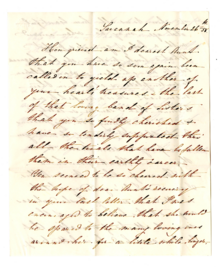 Savannah November 26th
How grieved am I dearest Aunt
that you have so soon again been
called on to yield up another of
your hearts treasures - the last
of that loving band of Sisters
that you so fondly cherished &
have so tenderly supported thro'
all the trials that have befallen
them in their earthly career.
We seemed to be so cheered with
the hope of dear Aunts recovery
in your last letter, that I was
encouraged to believe, that she would
be spared to the many loving ones
around her for a little while longer,